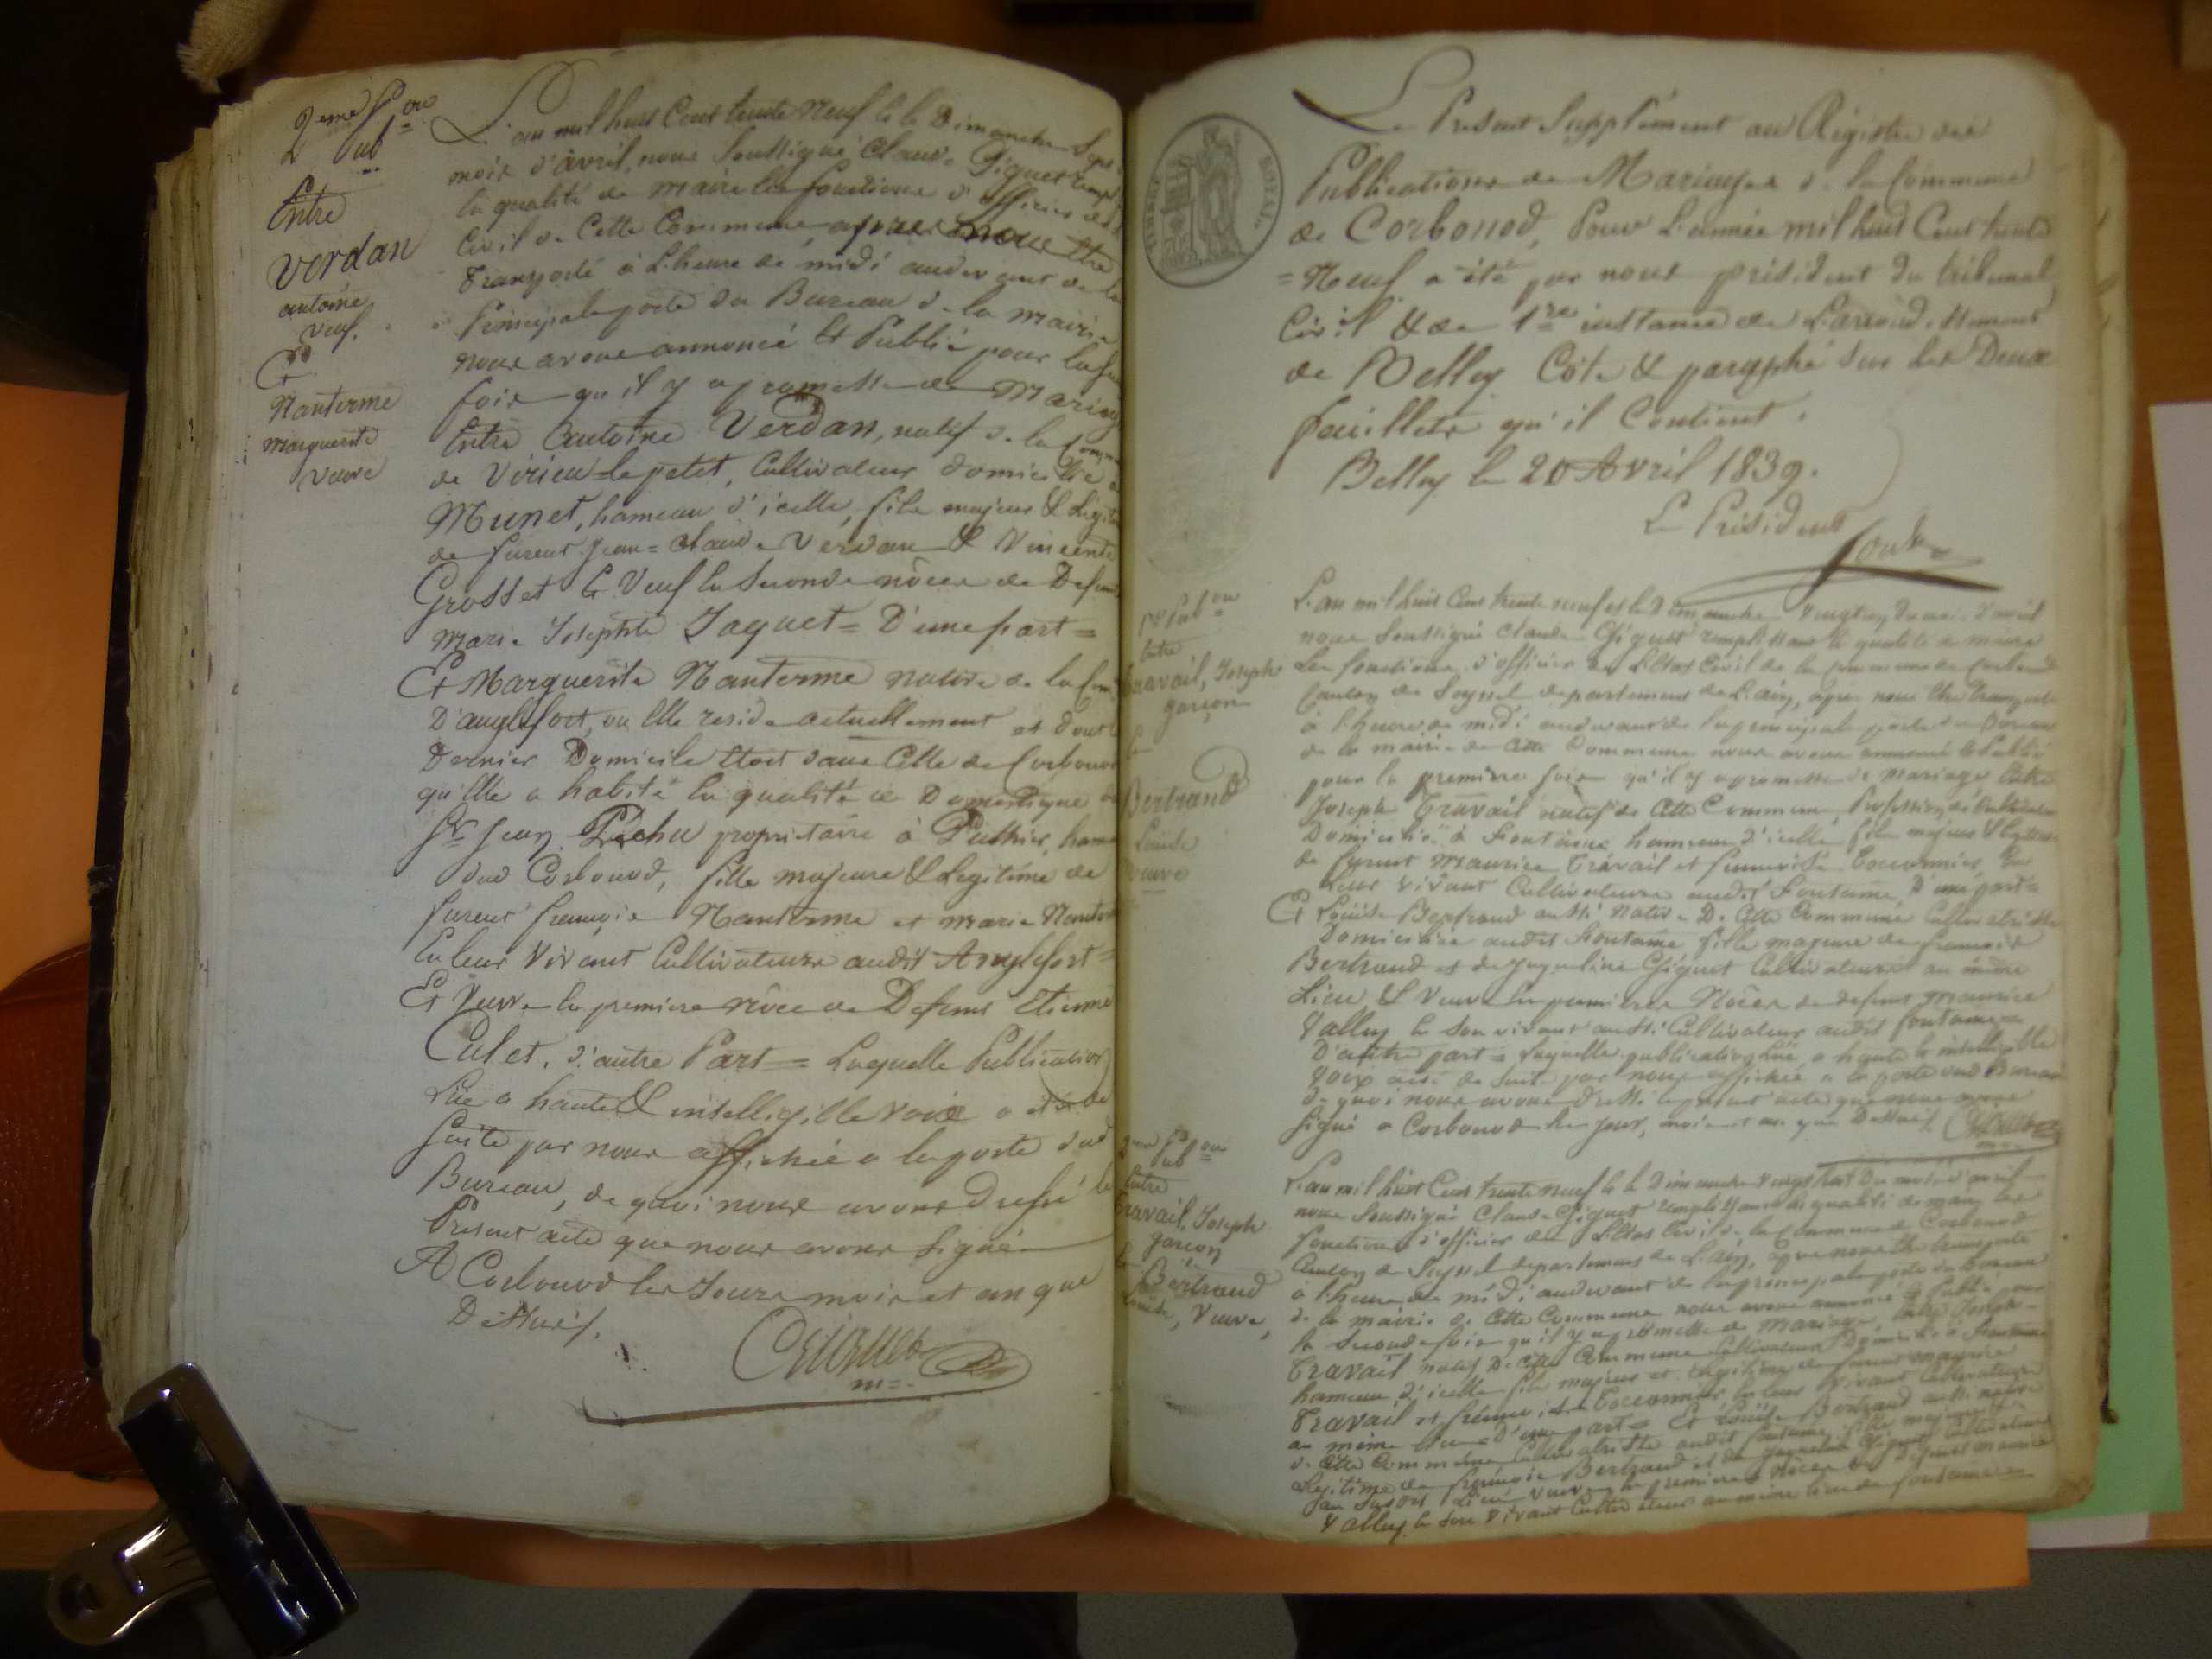 2eme Pub.on
Entre
Verdan
antoine,
veuf.
Et
Nanterme
Marguerite
veuve
L'an mil huit Cent trente Neuf & le Dimanche Sept
mois d'avril, nous Soussigné Claude Giguet rempl
la qualité de maire les fonctions d'officier de l'
Civil de Cette Commune, après nous être
transporté à L'heure de midi audevant de la
Principale porte du Bureau de la mairie
nous avons annoncé & Publié pour la se
fois qu'il y a promesse de Mariag
Entre Antoine Verdan, natif de la Comm
de Virieu-le petit, Cultivateur domicilié à
Munet, hameau d'icelle, fils majeur & Légit
de furent Jean-Claude Verdan & Vincente
Grosset & Veuf en Seconde nôces de Defunt
Marie Josephte Jaquet = D'une part =
Et Marguerite Nanterme native de la Com
D'anglefort, ou Elle reside actuellement et dont l
Dernier Domicile Etoit dans Celle de Corbonod
qu'Elle a habité en qualité de Domestique
Sr Jean Péchu propriétaire à Puthier, hame
dud Corbonod, fille majeure & Legitime de
furent françois Nanterme et Marie Nanter
En leur Vivant Cultivateurs audit Anglefort =
Et Veuve en premiere nôce de Defunt Etienne
Culet, d'autre Part = Laquelle Publication
Lue a haute & intelligible voix a été de
suite par nous affichée a la porte dud
Bureau, de quoi nous avons Dressé le
Present acte que nous avons Signé
A Corbonod les Jours mois et an que
Dessus.
Le Present Supplément au Régistre des
Publications de Mariages de la Commune
de Corbonod, Pour L'année mil huit Cent trente
=Neuf a été par nous président du tribunal
Civil & de 1re instance de L'arrondissement
de Belley Côté & paraphé sur les Deux
feuillets qu'il Contient.
Belley le 20 Avril 1839.
Le Président
1re Pub.on
Entre
Travail, Joseph
garçon
Et
Bertrand
Louise
Veuve
L'an mil huit Cent trente neuf et le Dimanche Vingt un du mois d'avril
nous Soussigné Claude Giguet remplissant la qualité de maire
Les fonctions d'officier de L'Etat Civil de la Commune de Corbonod
Canton de Seyssel departement de L'ain, après nous être transporté
à L'heure de midi audevant de la principale porte du Bureau
de la mairie de Cette Commune nous avons annoncé & Publié
pour la premiere fois qu'il y a promesse de Mariage Entre
Joseph Travail natif de Cette Commune, Profession de Cultivateur
Domicilié à Fontaine hameau d'icelle fils majeur & Legitime
de furent Maurice Travail et françoise Toccannier En
Leur vivant Cultivateurs audit Fontaine, D'une part =
Et Louise Bertrand aussi Native De Cette Commune Cultivatrice
Domiciliée audit Fontaine fille majeure de françois
Bertrand et de Jaqueline Giguet Cultivateurs au même
Lieu, & Veuve En premiere Noces de defunt Maurice
Valley En Son vivant aussi Cultivateur audit fontaine =
D'autre part = Laquelle publication Luë a haute & intelligible
Voix a été de Suite par nous affichée a la porte dud Bureau
De quoi nous avons Dressé le present acte que nous avons
Signé a Corbonod les jour, mois et an que Dessus.
2eme Pub.on
Entre
Travail, Joseph
garçon
Et
Bertrand
Louise, Veuve,
L'an mil huit Cent trente neuf & le Dimanche Vingt huit Du mois d'avril
nous Soussigné Claude Giguet remplissant la qualité de maire les
fonctions d'officier de L'Etat Civil de la Commune de Corbonod
Canton de Seyssel departement de L'ain, après nous être transporté
à l'heure de midi audevant de la principale porte du Bureau
de la mairie de Cette Commune nous avons annoncé & Publié pour
la Seconde fois qu'il y a promesse de Mariage, Entre Joseph
Travail natif De Cette Commune Cultivateur Domicilié à Fontaine
hameau d'icelle fils majeur et Legitime de furent Maurice
Travail et françoise Toccannier En leur Vivant Cultivateurs
au même Lieu = D'une part = Et Louise Bertrand aussi native
de Cette Commune Cultivatrice audit fontaine fille majeure &
Legitime de françois Bertrand et de Jaqueline Giguet Cultivateurs
au Susdit Lieu Veuve En premiere Nôces de Defunt Maurice
Valley En Son Vivant Cultivateur au même Lieu de fontaine =